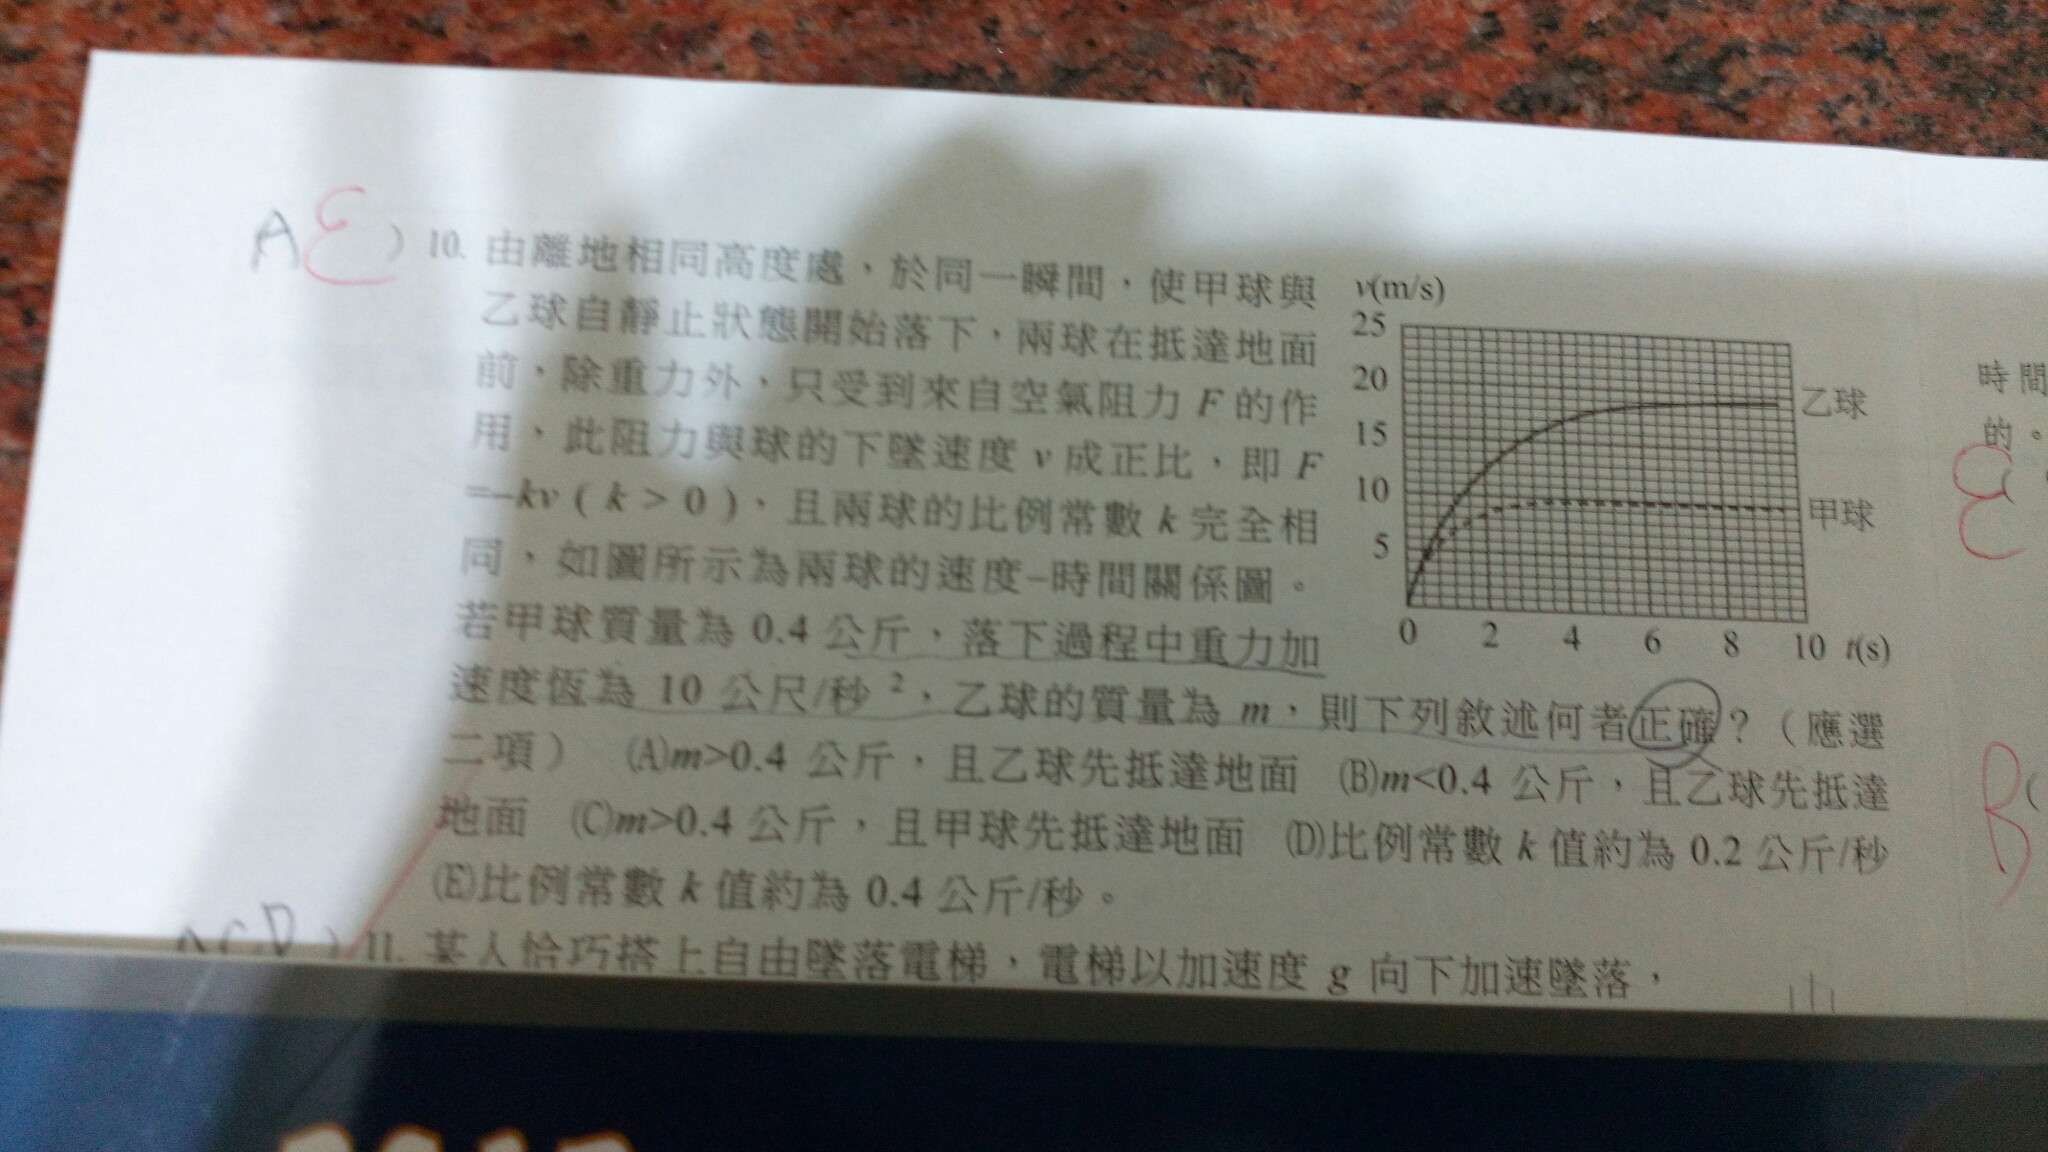 AE ) 10. 由離地相同高度處，於同一瞬間，使甲球與
乙球自靜止狀態開始落下，兩球在抵達地面
前，除重力外，只受到來自空氣阻力 F 的作
用，此阻力與球的下墜速度 v 成正比，即 F
=-kv ( k > 0 )，且兩球的比例常數 k 完全相
同，如圖所示為兩球的速度-時間關係圖。
若甲球質量為 0.4 公斤，落下過程中重力加
速度恆為 10 公尺/秒²，乙球的質量為 m，則下列敘述何者正確？（應選
二項） (A)m>0.4 公斤，且乙球先抵達地面 (B)m<0.4 公斤，且乙球先抵達
地面 (C)m>0.4 公斤，且甲球先抵達地面 (D)比例常數 k 值約為 0.2 公斤/秒
(E)比例常數 k 值約為 0.4 公斤/秒。
v(m/s)
25
20
15
10
5
0 2 4 6 8 10 t(s)
乙球
甲球
) 11. 某人恰巧搭上自由墜落電梯，電梯以加速度 g 向下加速墜落，
時間
的。
B(